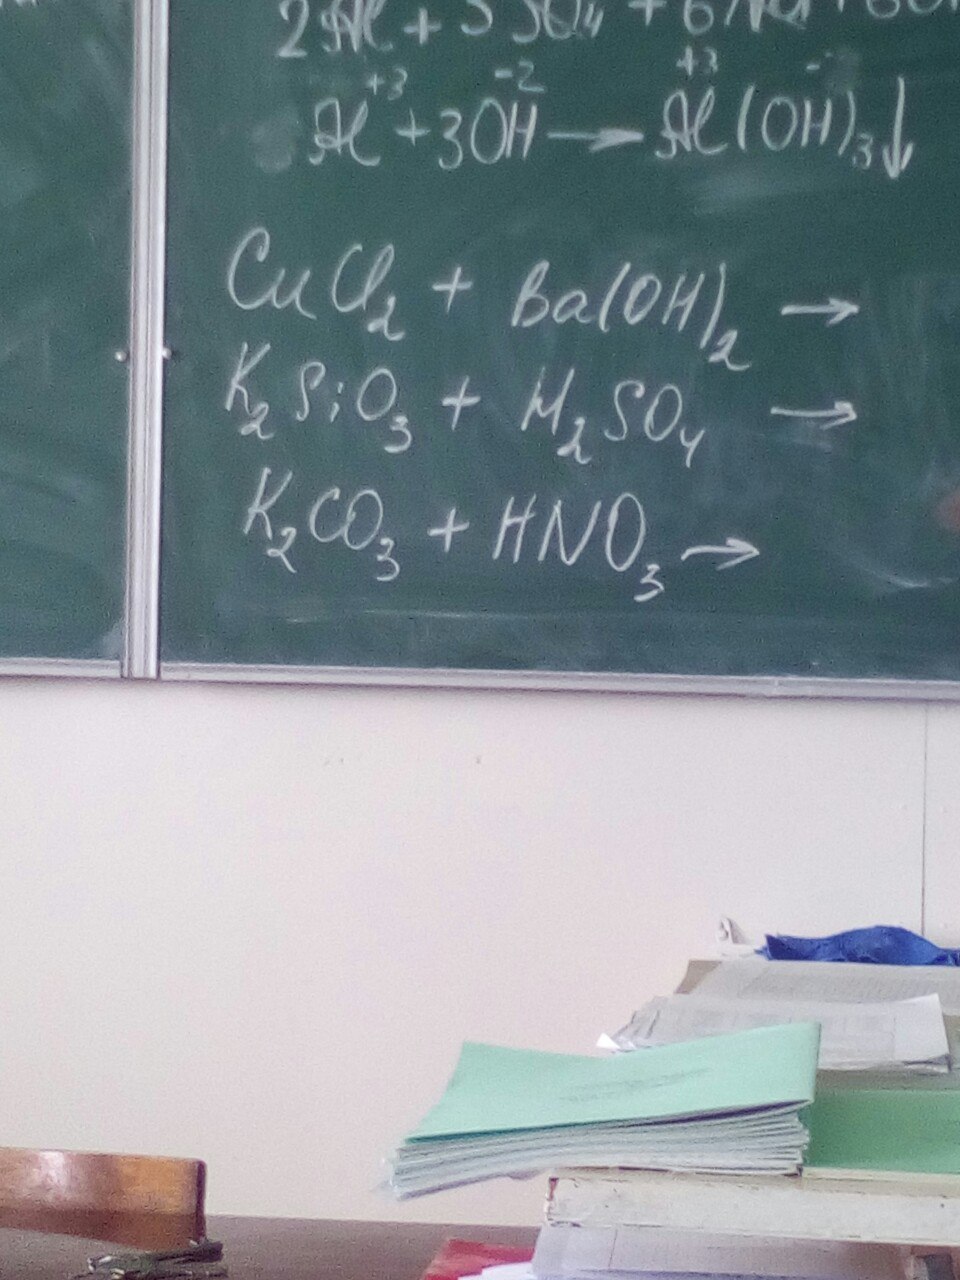 2Al + 3SO₄ + 6Na + 6OH
Al⁺³ + 3OH⁻² → Al⁺³(OH)₃⁻²↓
CuCl₂ + Ba(OH)₂ →
K₂SiO₃ + H₂SO₄ →
K₂CO₃ + HNO₃ →